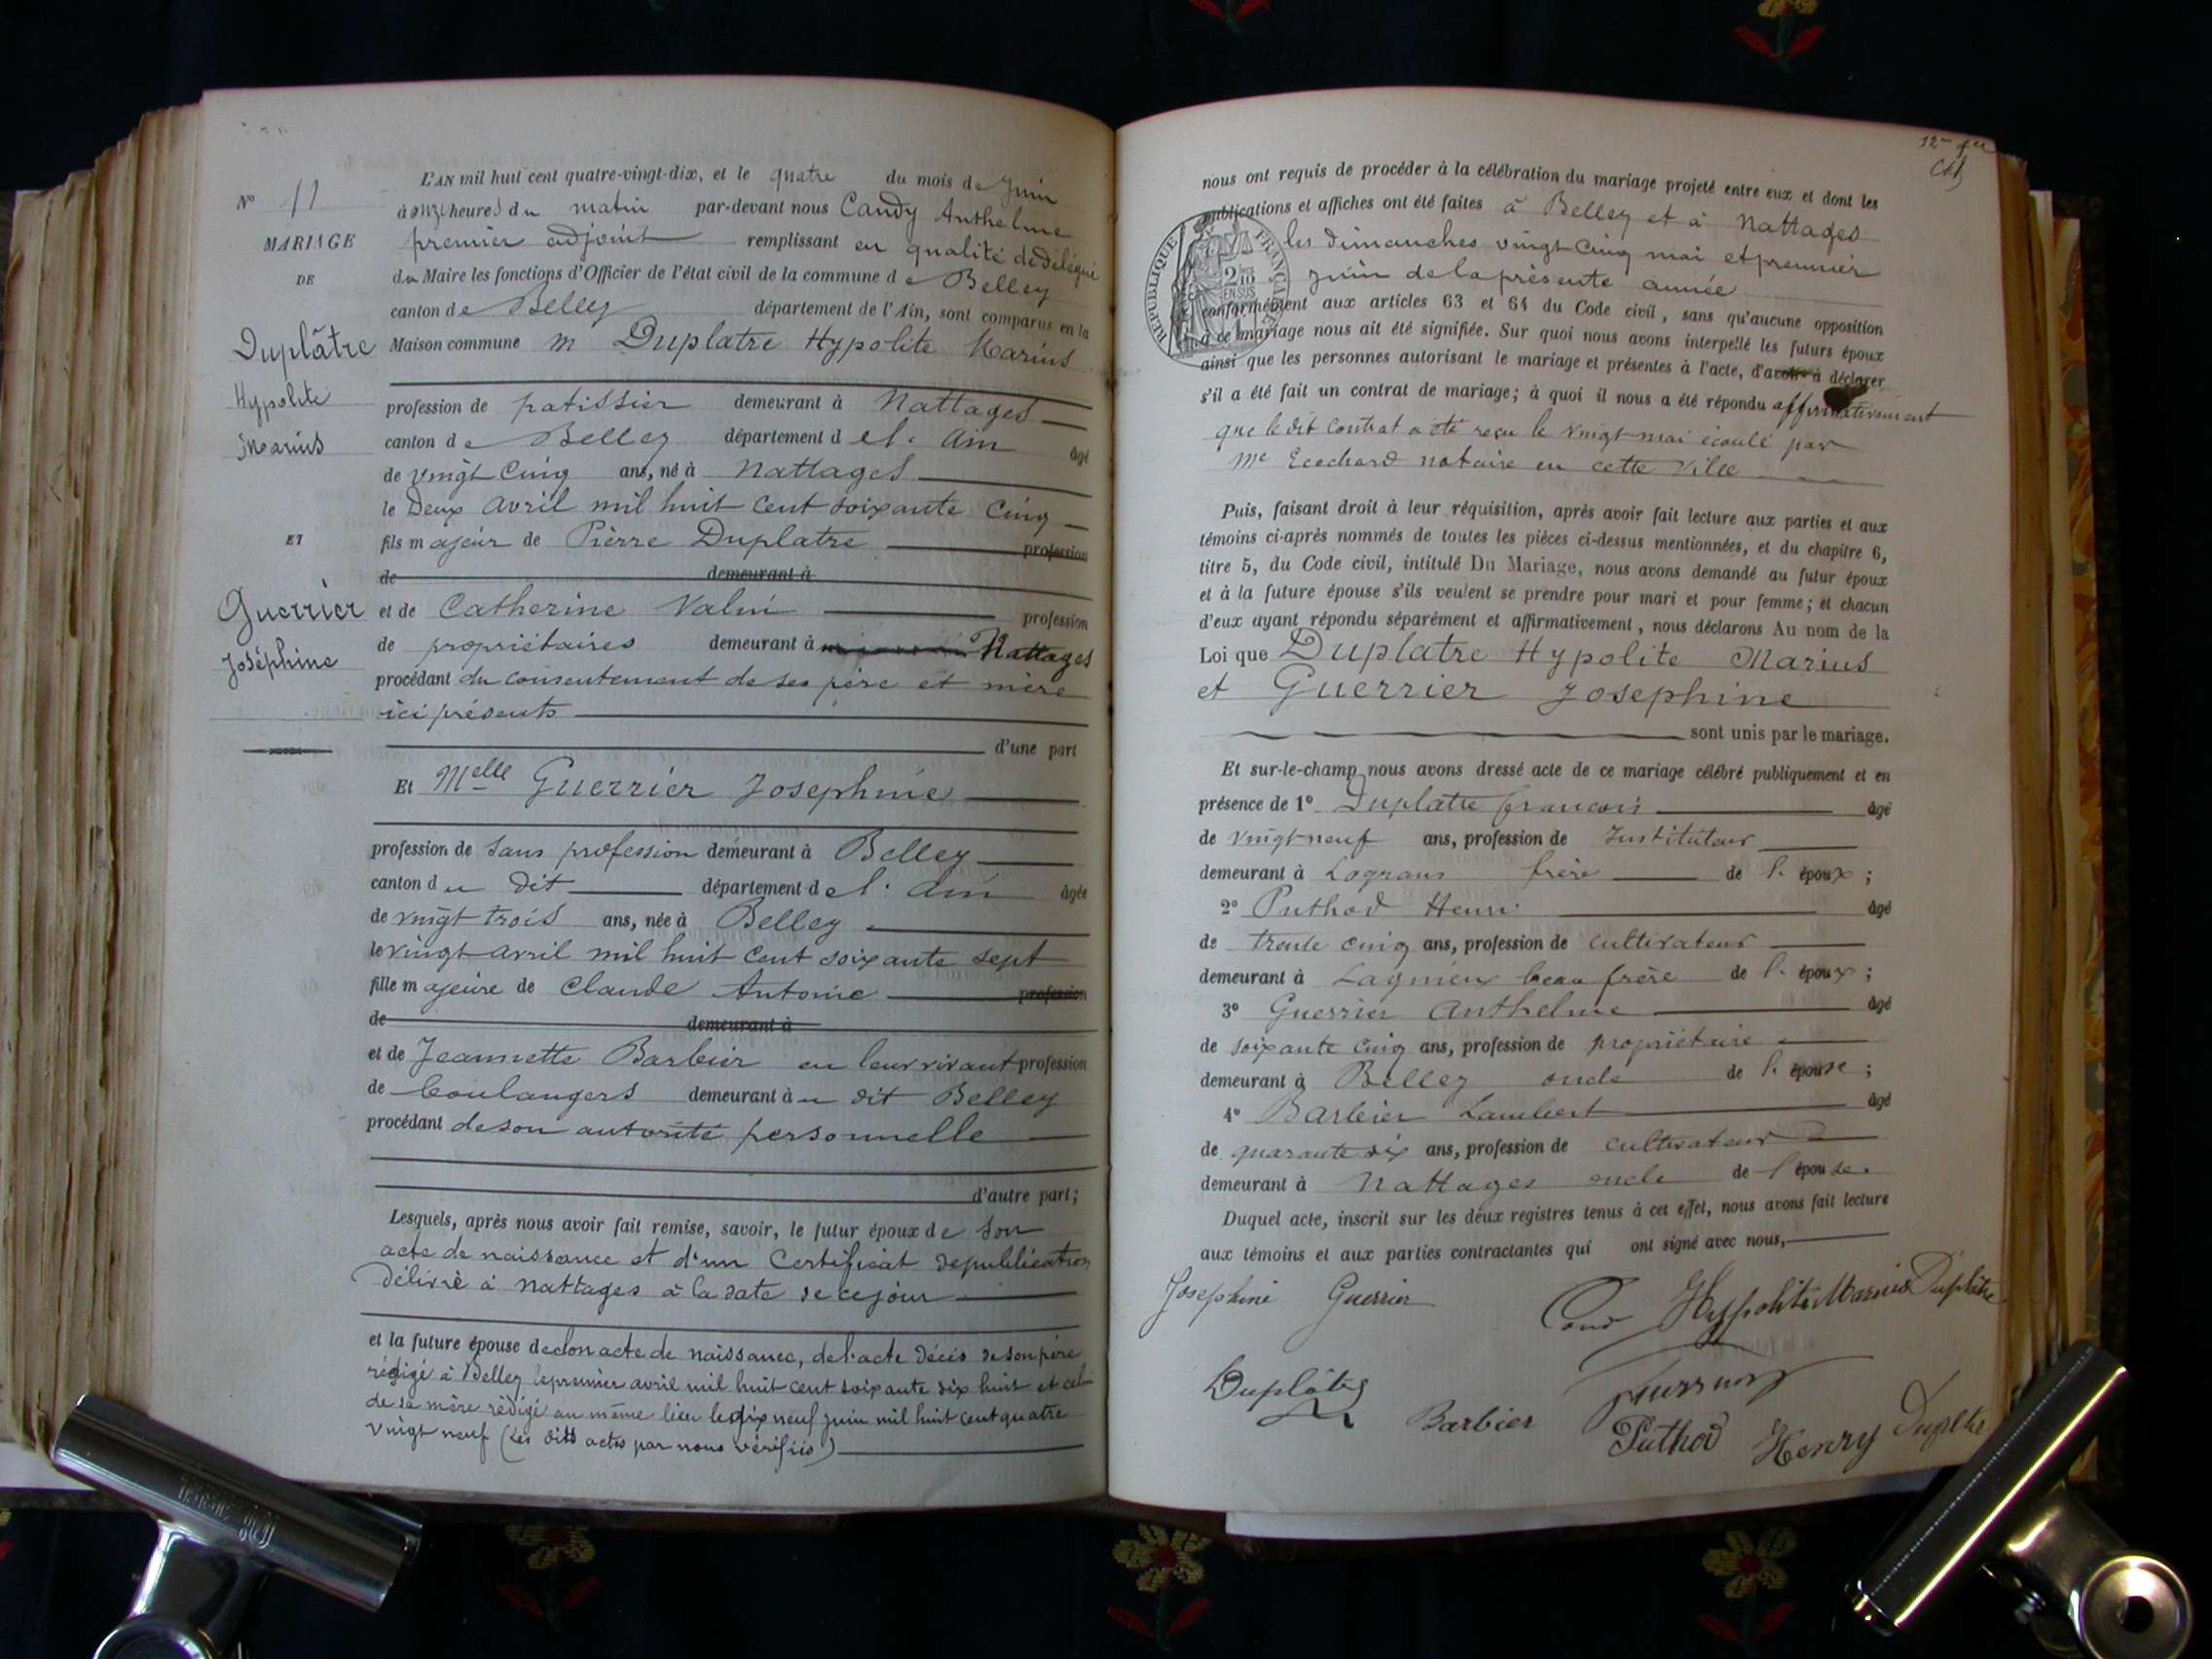 L'AN mil huit cent quatre-vingt-dix, et le quatre du mois de Juin
N° 11
à onze heures du matin par-devant nous Candy Anthelme
MARIAGE
premier adjoint remplissant en qualité de délégué
DE
du Maire les fonctions d'Officier de l'état civil de la commune de Belley
canton de Belley département de l'Ain, sont comparus en la
Duplâtre
Maison commune M Duplatre Hypolite Marius
Hypolite
profession de patissier demeurant à Nattages
Marius
canton de Belley département de l'Ain âgé
de vingt cinq ans, né à Nattages
le Deux avril mil huit cent soixante cinq
ET
fils majeur de Pierre Duplatre profession
de demeurant à
Guerrier
et de Catherine profession
Joséphine
de propriétaires demeurant à Nattages
procédant du consentement de ses père et mère
ici présents
d'une part
Et Melle Guerrier Josephine
profession de sans profession demeurant à Belley
canton du dit département de l'Ain âgée
de vingt trois ans, née à Belley
le vingt avril mil huit cent soixante sept
fille majeure de Claude Antoine profession
de demeurant à
et de Jeannette Barbier en leur vivant profession
de boulangers demeurant au dit Belley
procédant de son autorité personnelle
d'autre part;
Lesquels, après nous avoir fait remise, savoir, le futur époux de son
acte de naissance et d'un Certificat de publication
délivré à Nattages à la date de ce jour
et la future épouse de son acte de naissance, de l'acte décès de son père
rédigé à Belley le premier avril mil huit cent soixante dix huit et celui
de sa mère rédigé au même lieu le dix neuf juin mil huit cent quatre
vingt neuf (Les dits actes par nous vérifiés)
12me
nous ont requis de procéder à la célébration du mariage projeté entre eux et dont les
publications et affiches ont été faites à Belley et à Nattages
les dimanches vingt cinq mai et premier
juin de la présente année
RÉPUBLIQUE FRANÇAISE
2/10 EN SUS
conformément aux articles 63 et 64 du Code civil, sans qu'aucune opposition
à ce mariage nous ait été signifiée. Sur quoi nous avons interpellé les futurs époux
ainsi que les personnes autorisant le mariage et présentes à l'acte, d'avoir à déclarer
s'il a été fait un contrat de mariage; à quoi il nous a été répondu affirmativement
que le dit contrat a été reçu le vingt mai écoulé par
Me Ecochard notaire en cette ville
Puis, faisant droit à leur réquisition, après avoir fait lecture aux parties et aux
témoins ci-après nommés de toutes les pièces ci-dessus mentionnées, et du chapitre 6,
titre 5, du Code civil, intitulé Du Mariage, nous avons demandé au futur époux
et à la future épouse s'ils veulent se prendre pour mari et pour femme; et chacun
d'eux ayant répondu séparément et affirmativement, nous déclarons Au nom de la
Loi que Duplatre Hypolite Marius
et Guerrier Josephine
sont unis par le mariage.
Et sur-le-champ nous avons dressé acte de ce mariage célébré publiquement et en
présence de 1° Duplatre francois âgé
de vingt neuf ans, profession de Instituteur
demeurant à frère de l'époux;
2° Puthod Henri âgé
de trente cinq ans, profession de cultivateur
demeurant à Lagnieu beau frère de l'époux;
3° Guerrier Anthelme âgé
de soixante cinq ans, profession de propriétaire
demeurant à Belley oncle de l'épouse;
4° Barbier Lambert âgé
de quarante six ans, profession de cultivateur
demeurant à Nattages oncle de l'épouse.
Duquel acte, inscrit sur les deux registres tenus à cet effet, nous avons fait lecture
aux témoins et aux parties contractantes qui ont signé avec nous,
Josephine Guerrier Hyppolite Marius Duplâtre
Duplâtre Barbier Guerrier
Puthod Henry